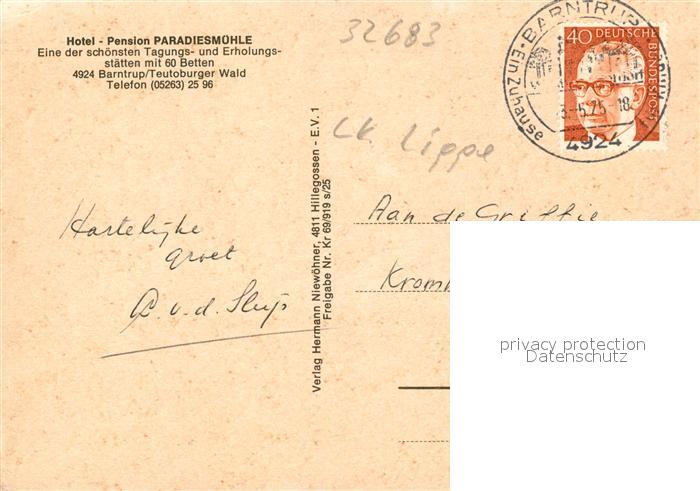 Hotel - Pension PARADIESMÜHLE
Eine der schönsten Tagungs- und Erholungs-
stätten mit 60 Betten
4924 Barntrup/Teutoburger Wald
Telefon (05263) 25 96
32683
Lk. Lippe
BARNTRUP
Ein Zuhause
4924
40 DEUTSCHE
BUNDESPOST
Hartelijke
groet
v.d. Sluijs
Verlag Hermann Niewöhner, 4811 Hillegossen - E.V. 1
Freigabe Nr. Kr 69/919 s/25
Aan de Griffie
privacy protection
Datenschutz